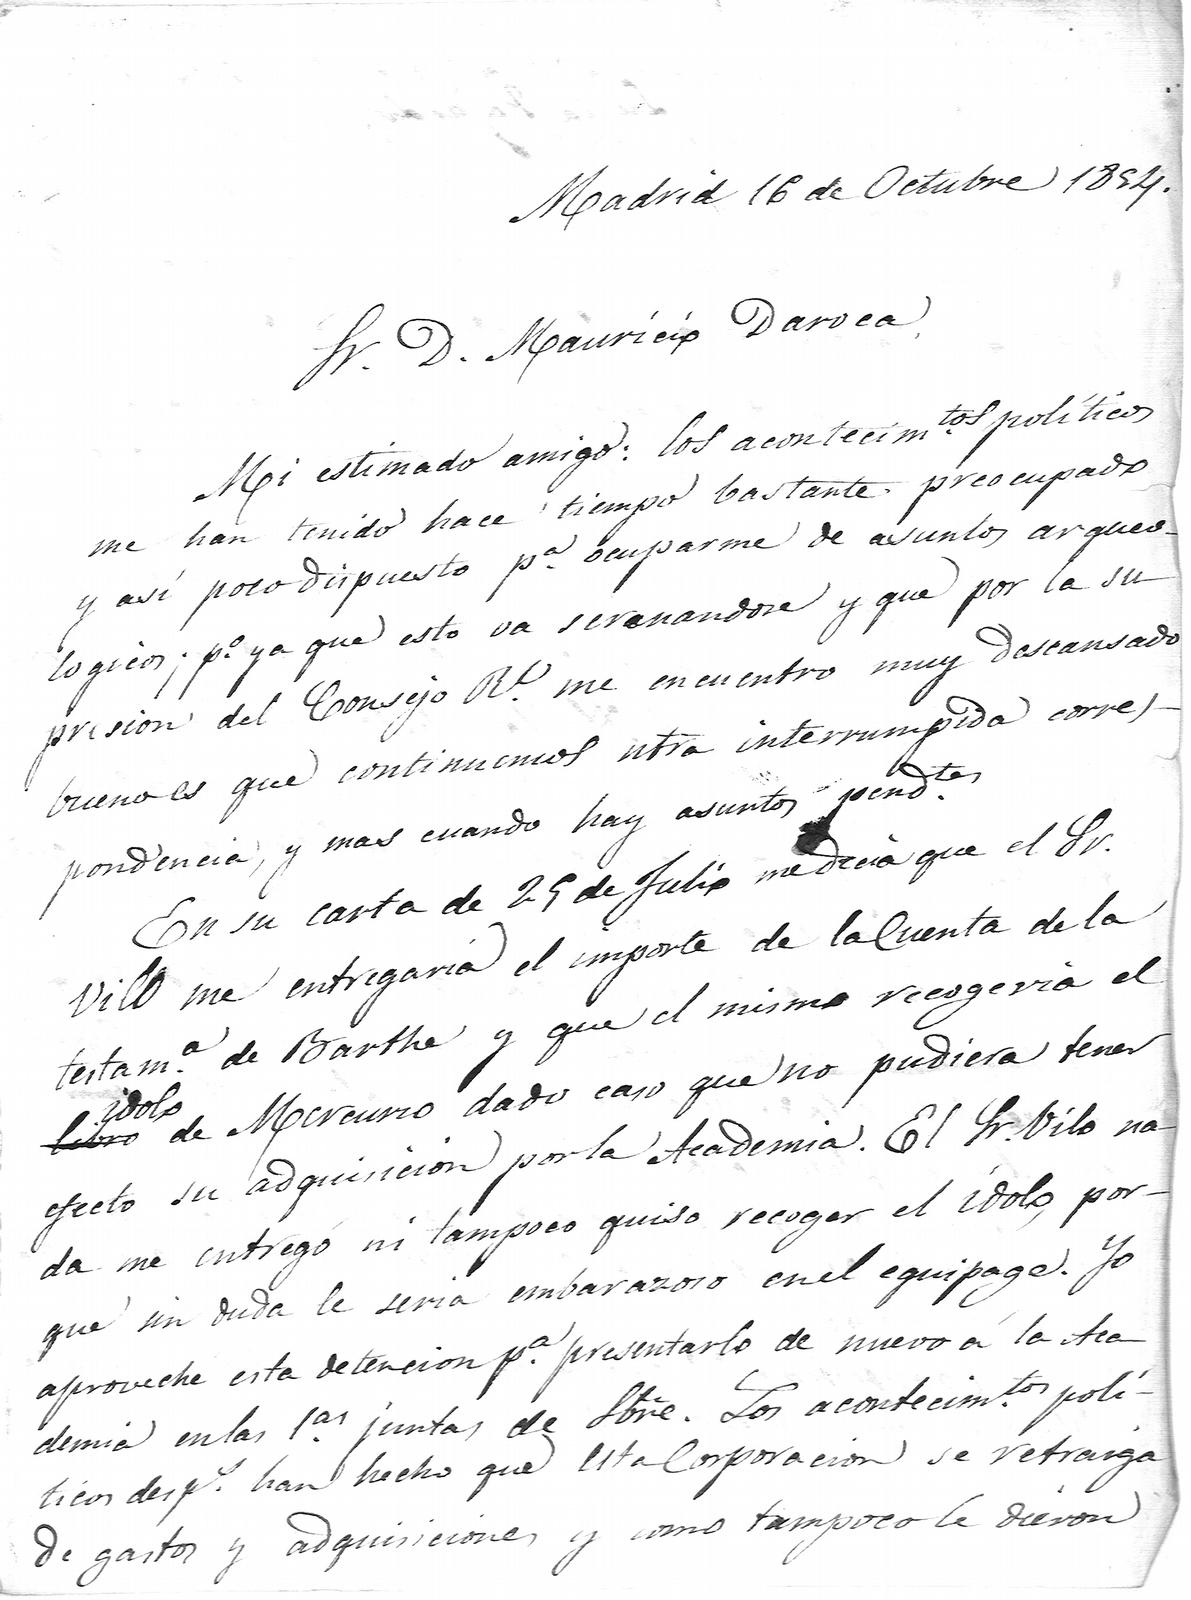 Madrid 16 de Octubre 1854.
Sr. D. Mauricio Daroca
Mi estimado amigo: los acontecim.tos políticos
me han tenido hace tiempo bastante preocupado
y así poco dispuesto p.a ocuparme de asuntos arqueo-
logicos; p.o ya que esto va serenandose y que por la su-
presion del Consejo R.l me encuentro muy descansado
bueno es que continuemos ntra interrumpida corres-
pondencia, y mas cuando hay asuntos pend.tes
En su carta de 25 de Julio me decia que el Sr.
Vilo me entregaria el importe de la Cuenta de la
testam.a de Barthe y que el mismo recogeria el
idolo
libro de Mercurio dado caso que no pudiera tener
efecto su adquisicion por la Academia. El Sr. Vilo na-
da me entregó ni tampoco quiso recoger el ídolo, por-
que sin duda le seria embarazoso en el equipage. Yo
aproveche esta detencion p.a presentarlo de nuevo á la Aca-
demia en las 1.as juntas de Sbre. Los acontecim.tos polí-
ticos desp.s han hecho que esta Corporacion se retraiga
de gastos y adquisiciones y como tampoco le dieron